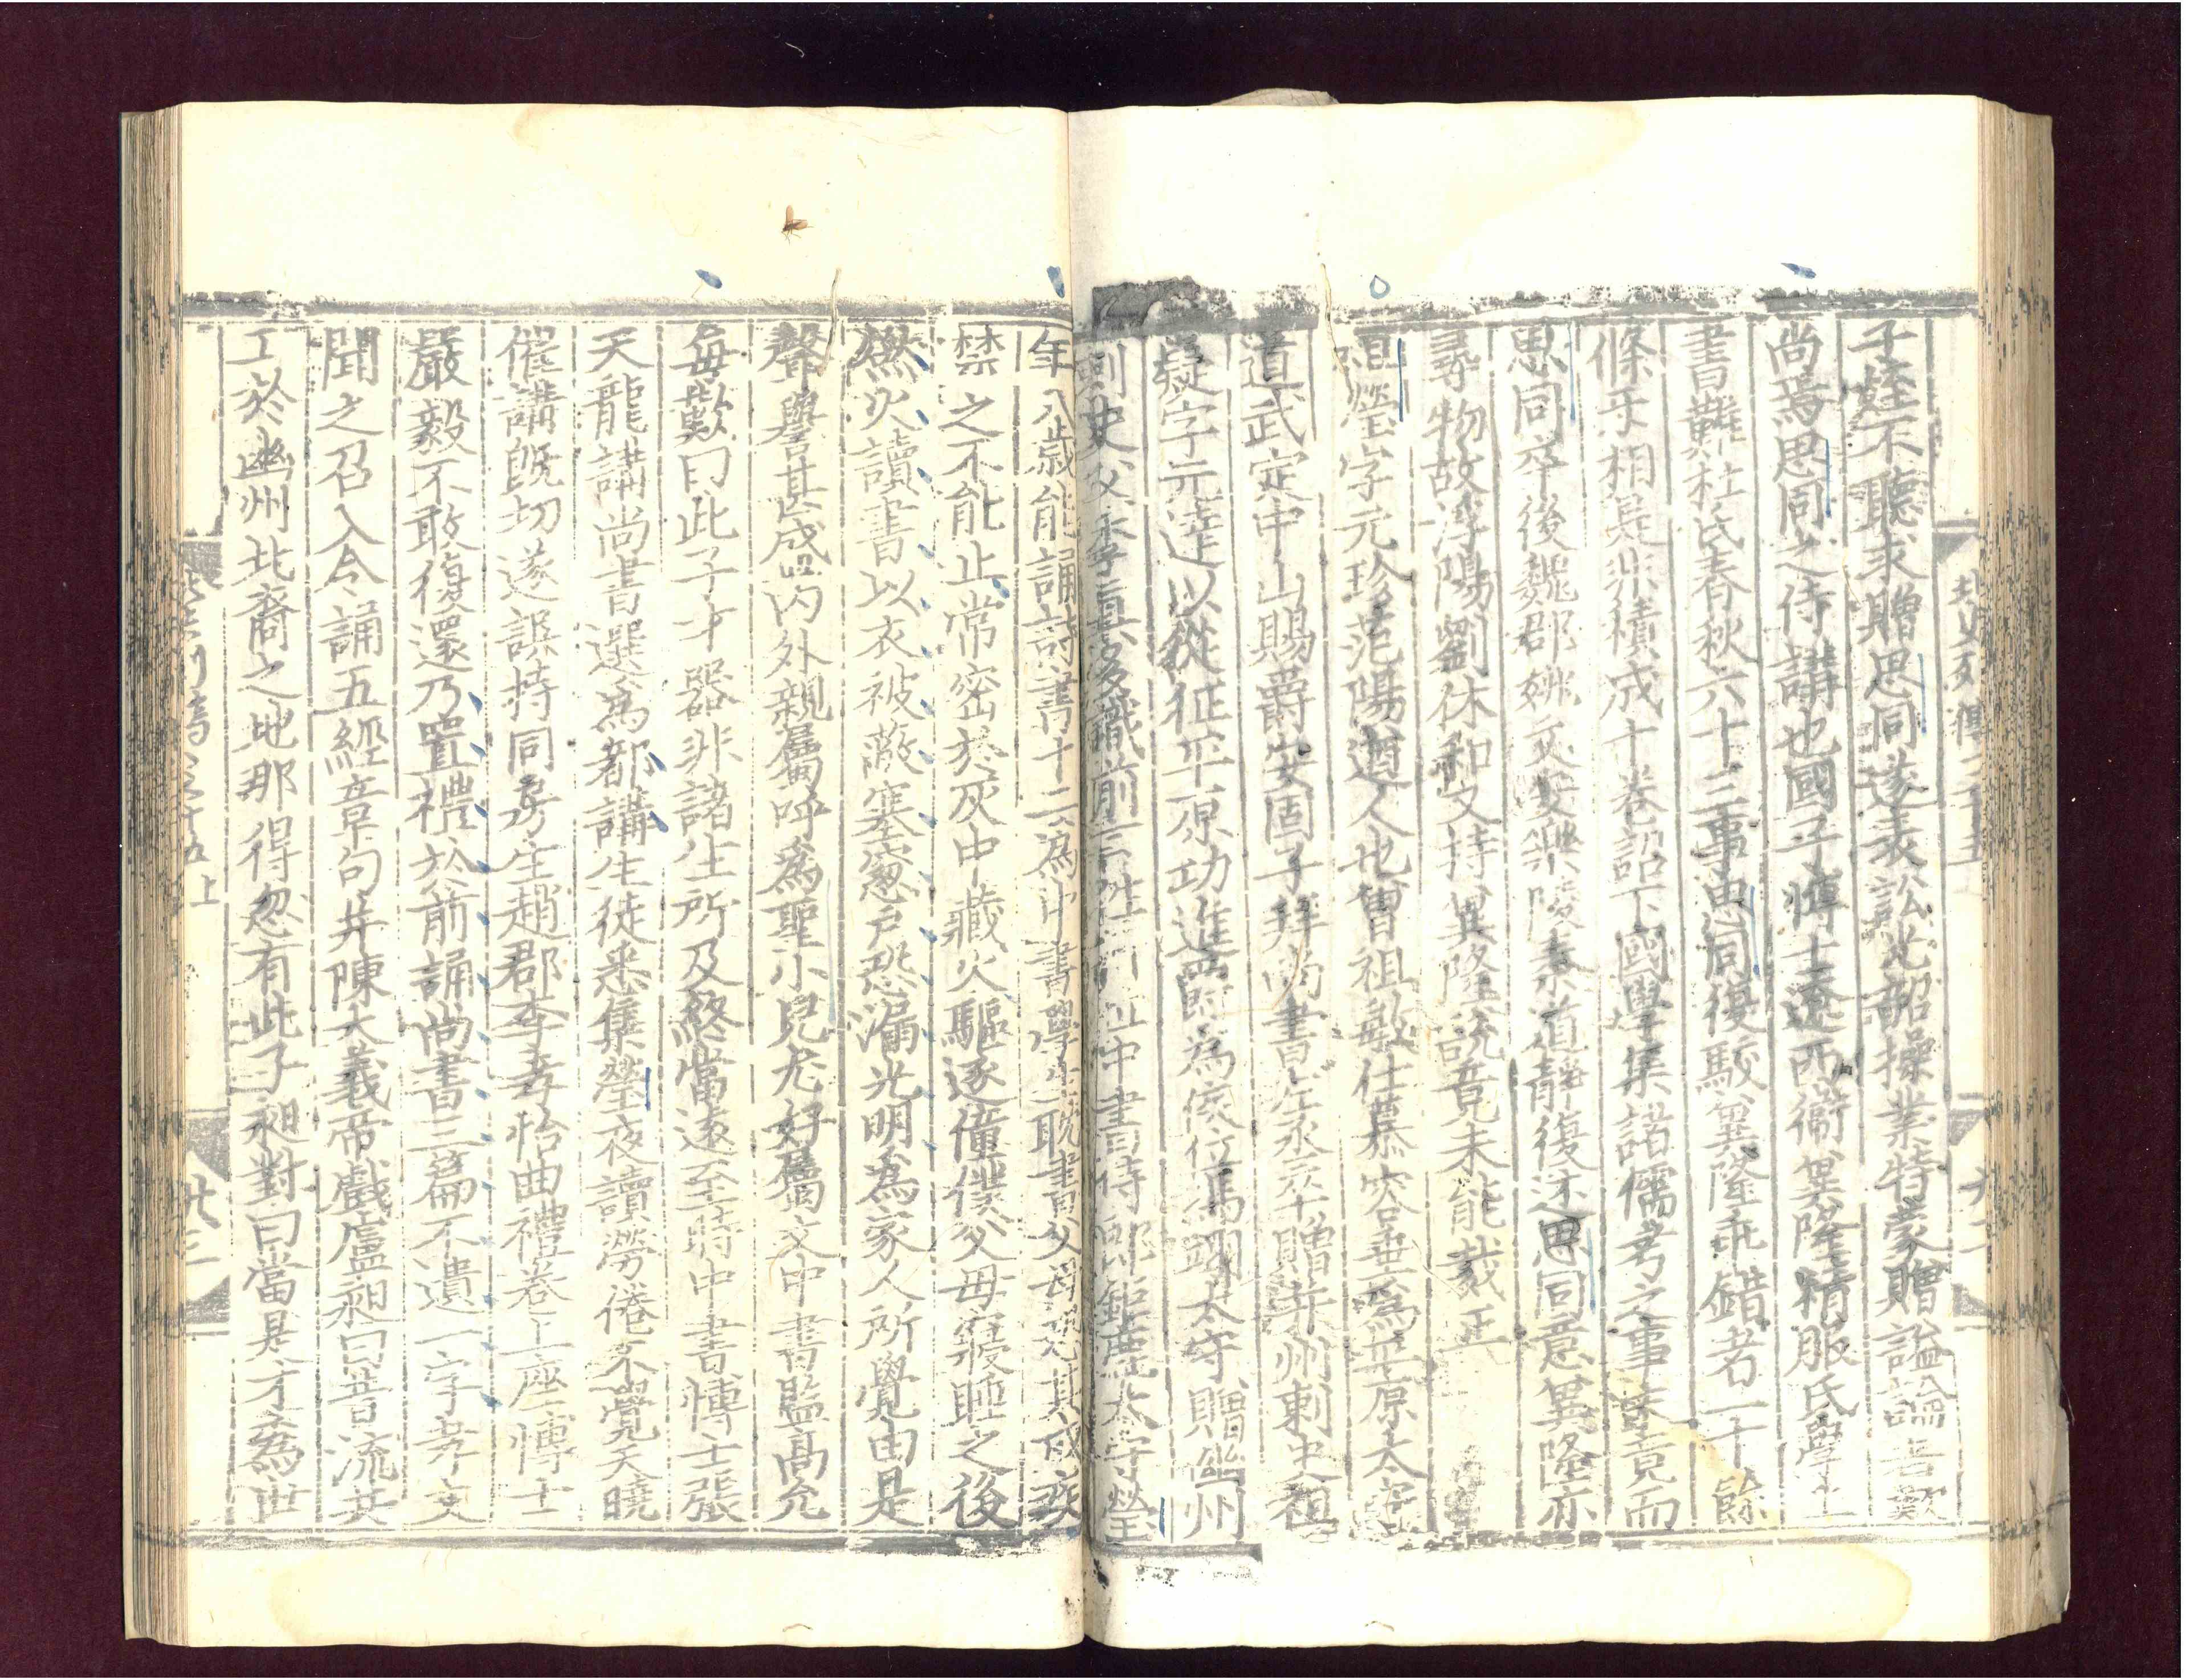 子姪不聽求贈思同遂表訟光韶操業特蒙贈謚論者歎
尚焉思同之侍講也國子博士遼西衞冀隆精服氏學上
書難杜氏春秋六十三事思同復駮冀隆乖錯者一十餘
條互相是非積成十卷詔下國學集諸儒考之事未竟而
思同卒後魏郡姚文安樂陵秦道靜復述思同意冀隆亦
尋物故浮陽劉休和又持冀隆說竟未能裁正
祖瑩字元珍范陽遒人也曾祖敏仕慕容垂爲平原太守
道武定中山賜爵安固子拜尚書左丞卒贈并州刺史祖
嶷字元達以從征平原功進爵爲侯位馮翊太守贈幽州
刺史父季真多識前言往行位中書侍郎鉅鹿太守瑩
年八歲能誦詩書十二爲中書學生耽書父母恐其成疾
禁之不能止常密於灰中藏火驅逐僮僕父母寢睡之後
燃火讀書以衣被蔽塞窻戶恐漏光明爲家人所覺由是
聲譽甚盛內外親屬呼爲聖小兒尤好屬文中書監高允
每歎曰此子才器非諸生所及終當遠至時中書博士張
天龍講尚書選爲都講生徒悉集瑩夜讀勞倦不覺天曉
催講旣切遂誤持同房生趙郡李孝怡曲禮卷上座博士
嚴毅不敢復還乃置禮於前誦尚書三篇不遺一字孝文
聞之召入令誦五經章句并陳大義帝戲盧昶曰昔流共
工於幽州北裔之地那得忽有此子昶對曰當是才爲世